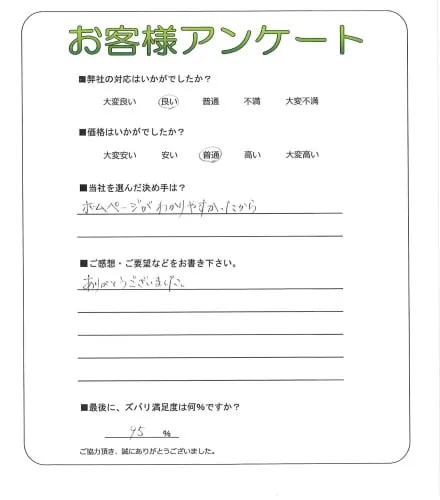 お客様アンケート
■弊社の対応はいかがでしたか？
大変良い 良い 普通 不満 大変不満
■価格はいかがでしたか？
大変安い 安い 普通 高い 大変高い
■当社を選んだ決め手は？
ホームページがわかりやすかったから
■ご感想・ご要望などをお書き下さい。
ありがとうございました。
■最後に、ズバリ満足度は何％ですか？
95 ％
ご協力頂き、誠にありがとうございました。